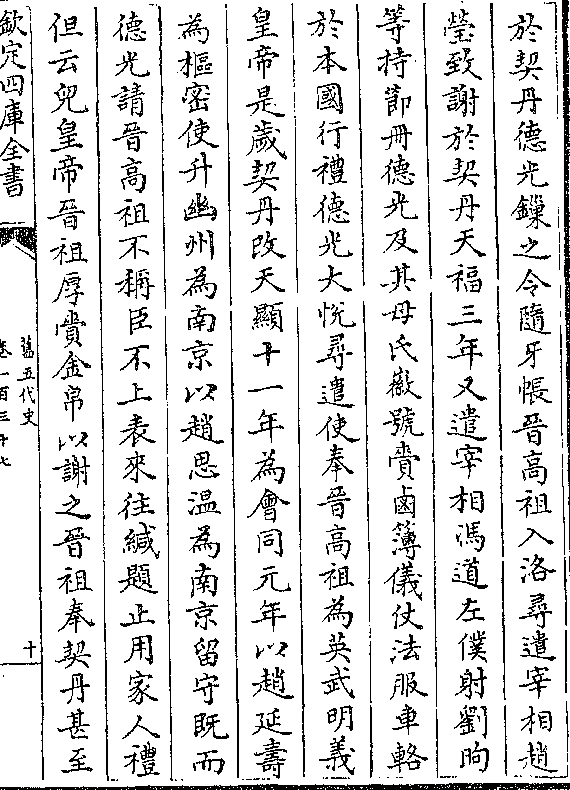 於契丹德光鏁之令隨牙帳晉高祖入洛尋遣宰相趙
瑩致謝於契丹天福三年又遣宰相馮道左僕射劉昫
等持節冊德光及其母氏徽號賫鹵簿儀仗法服車輅
於本國行禮德光大悅尋遣使奉晉高祖為英武明義
皇帝是歲契丹改天顯十一年為會同元年以趙延壽
為樞密使升幽州為南京以趙思溫為南京留守既而
德光請晉高祖不稱臣不上表來往緘題止用家人禮
但云兒皇帝晉祖厚賫金帛以謝之晉祖奉契丹甚至
欽定四庫全書
舊五代史
卷一百三十七
十